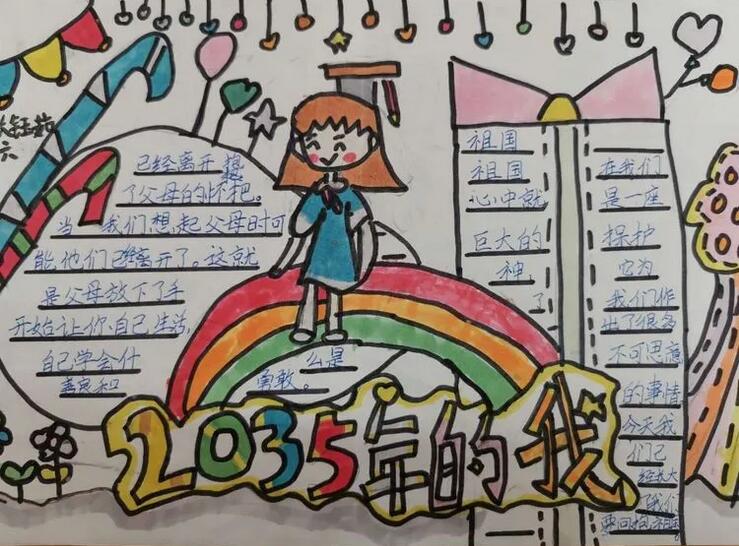 已经离开想
了父母的怀把。
当我们想起父母时可
能,他们已经离开了。这就
是父母放下了手
开始让你自己生活,
自己学会什
么是
善良和
勇敢。
祖国
祖国
在我们
心中就
是一座
巨大的
保护
神,
它为
了
我们作
出了很多
不可思意
的事情
今天我
们已
经长大
了我们
要回抱祖国
2035年的我
六